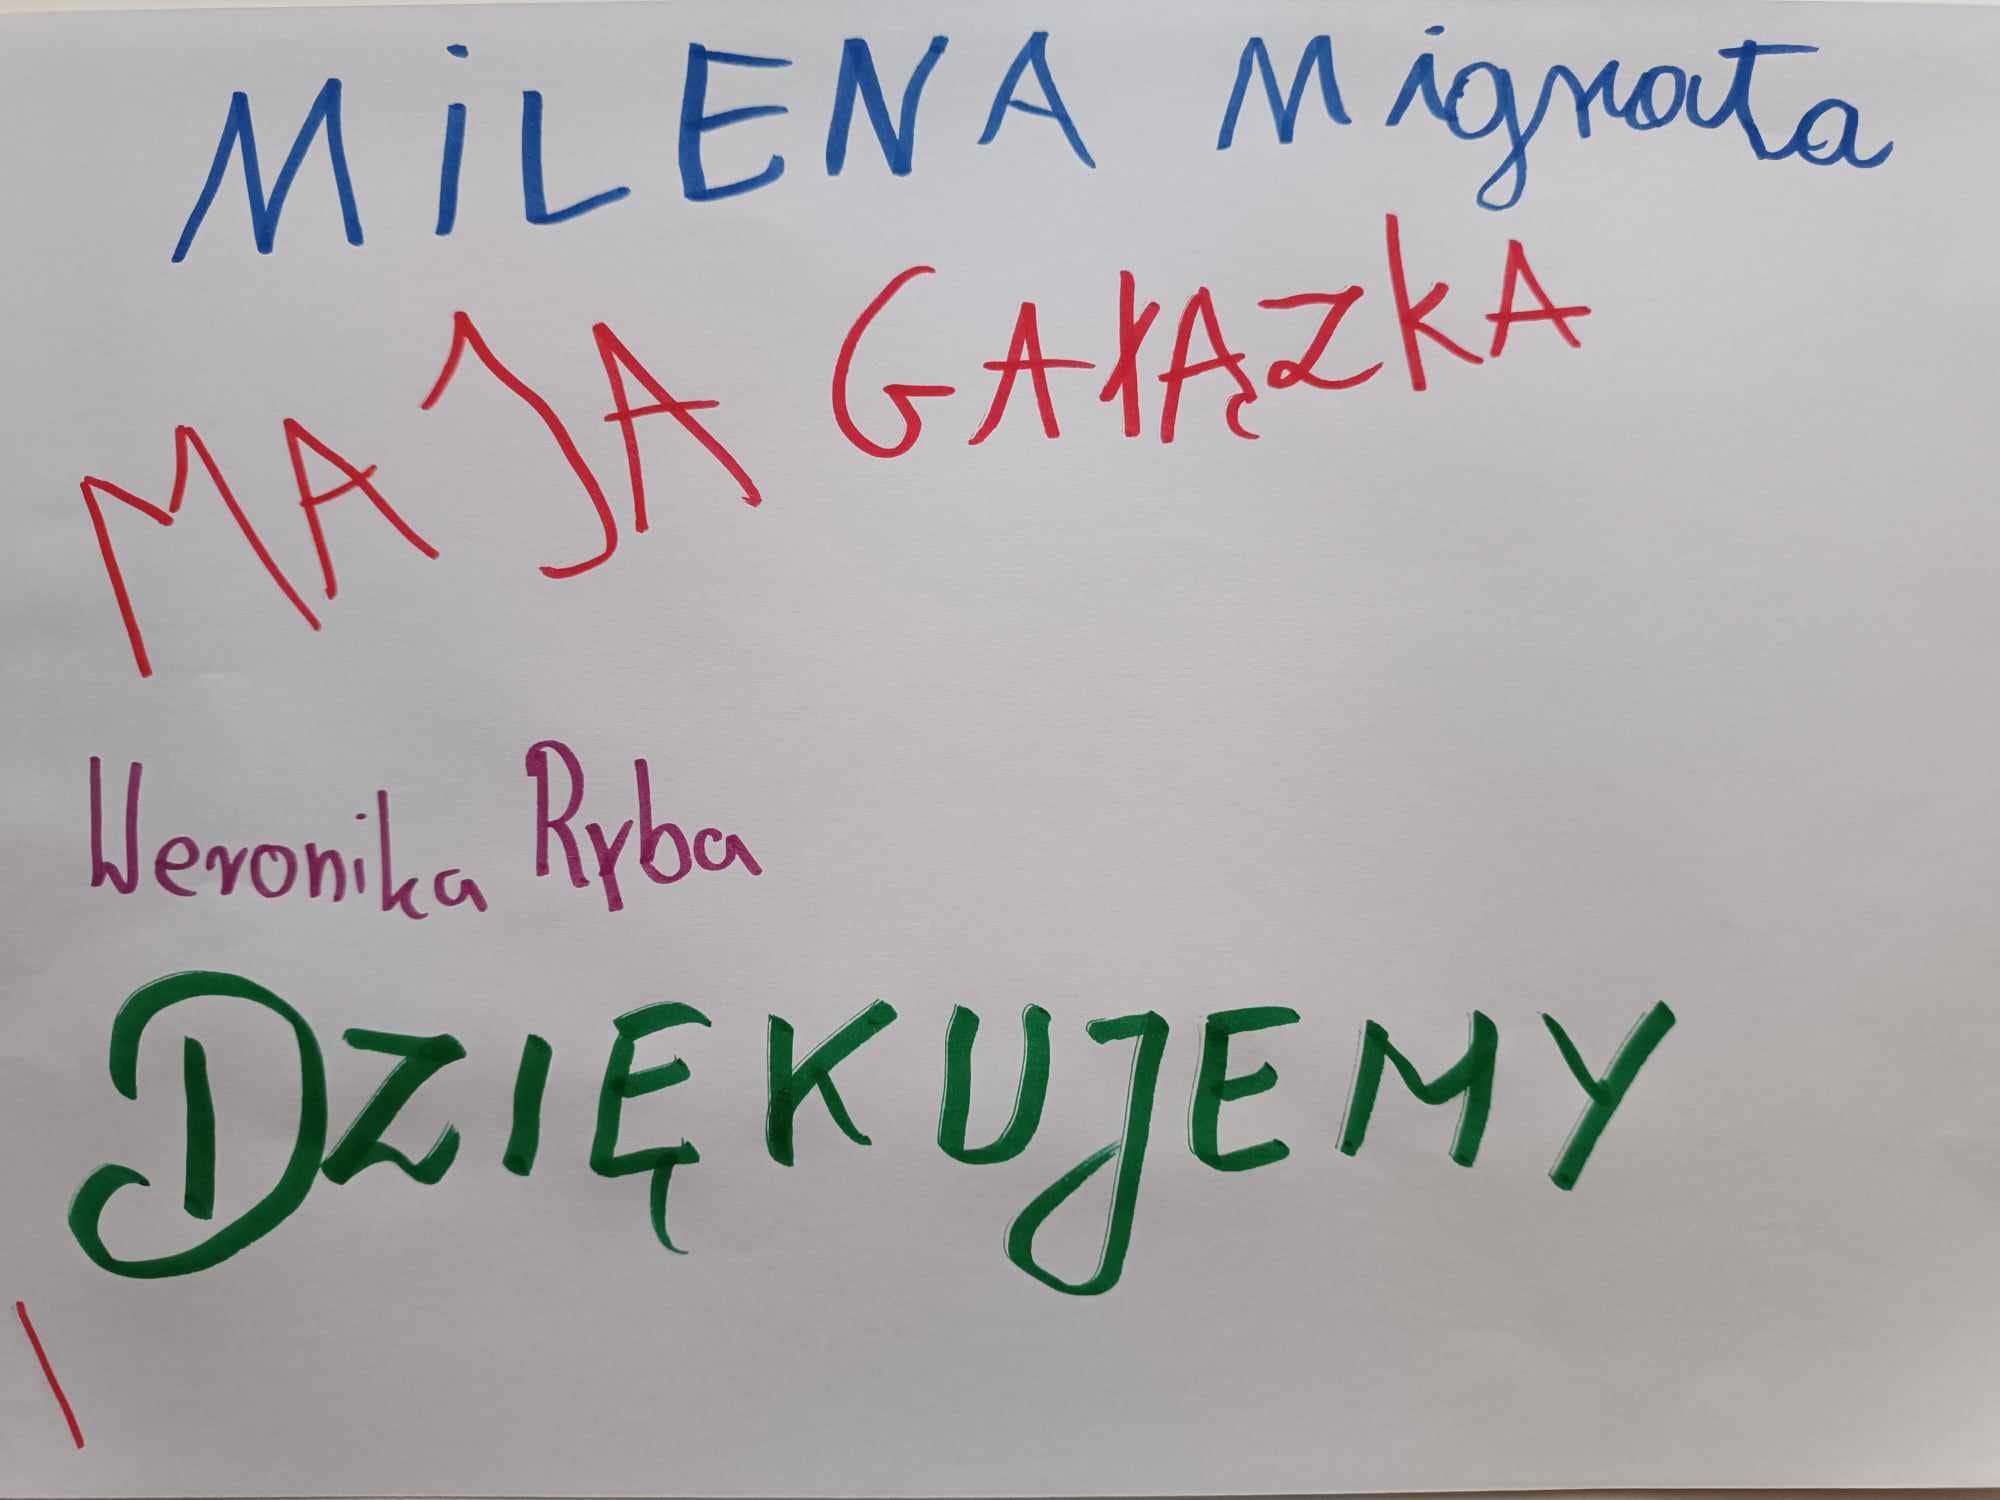 MiLENA Mignata
MAJA GAŁĄZKA
Weronika Ryba
DZIĘKUJEMY